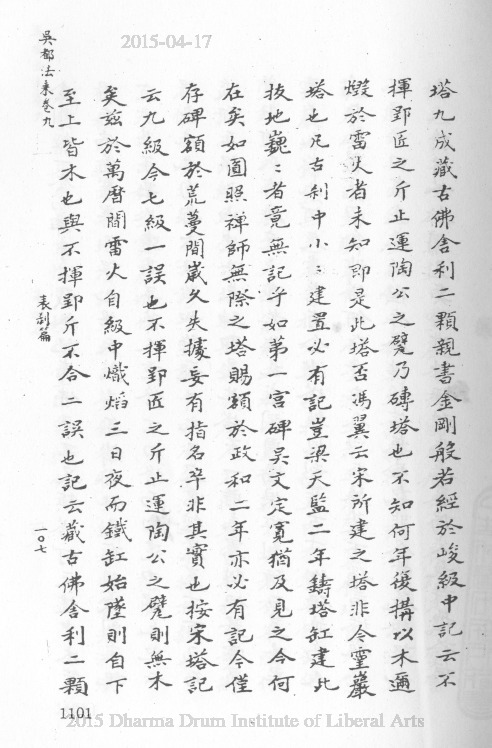 2015-04-17
塔九成藏古佛舍利二顆親書金剛般若經於峻級中記云不
揮郢匠之斤止運陶公之甓乃磚塔也不知何年復搆以木邇
燬於雷火者未知即是此塔否馮翼云宋所建之塔非今靈巖
塔也凡古剎中小ミ建置必有記豈梁天監二年鑄塔缸建此
拔地巍ミ者竟無記乎如第一宮碑吳文定寬猶及見之今何
在矣如圓照禪師無際之塔賜額於政和二年亦必有記今僅
存碑額於荒蔓間歲久失據妄有指名卒非其實也按宋塔記
云九級今七級一誤也不揮郢匠之斤止運陶公之甓則無木
矣茲於萬曆間雷火自級中熾焰三日夜而鐵缸始墜則自下
至上皆木也與不揮郢斤不合二誤也記云藏古佛舍利二顆
吳都法乘卷九
表剎篇
一０七
1101
2015 Dharma Drum Institute of Liberal Arts